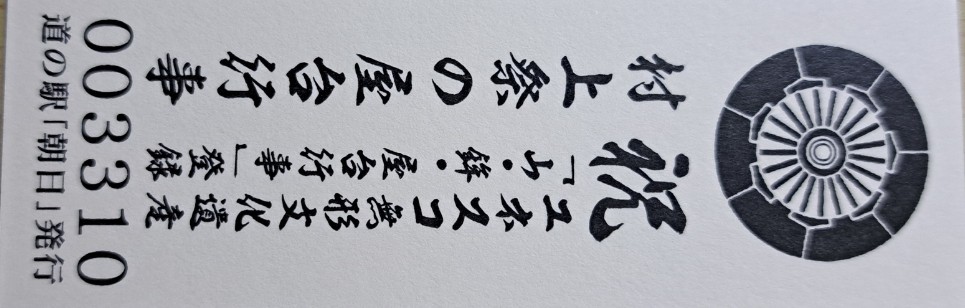 祝
ユネスコ無形文化遺産
「山・鉾・屋台行事」登録
村上祭の屋台行事
003310
道の駅「朝日」発行